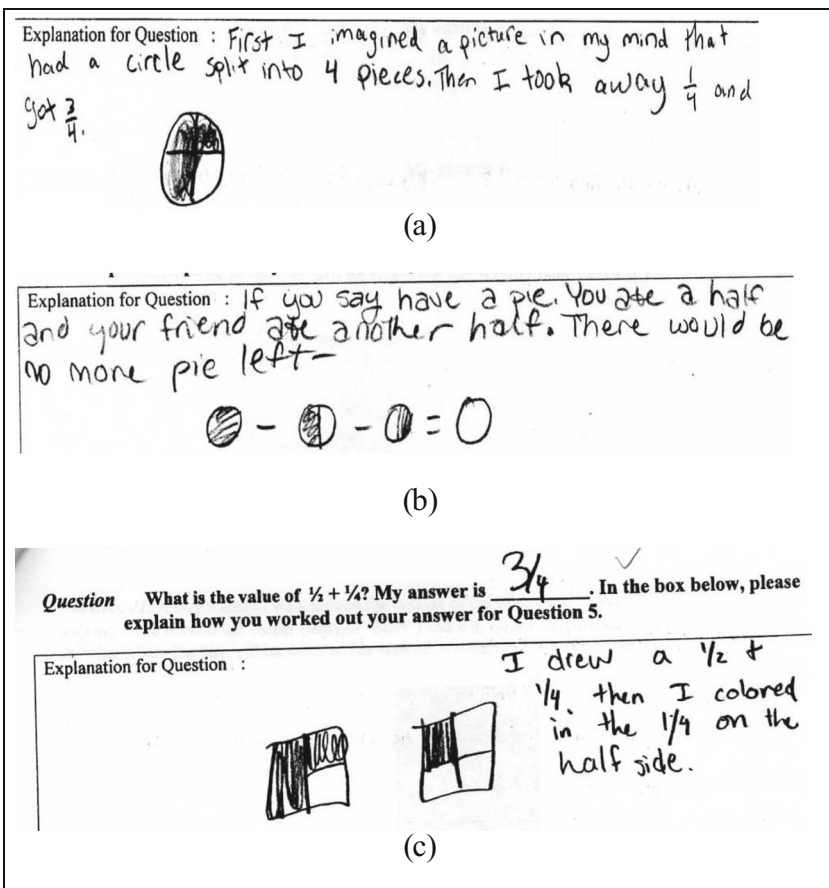 Explanation for Question : First I imagined a picture in my mind that
had a circle split into 4 pieces. Then I took away 1/4 and
got 3/4.
(a)
Explanation for Question : If you say have a pie. You ate a half
and your friend ate another half. There would be
no more pie left-
- - = 0
(b)
Question What is the value of ½ + ¼? My answer is 3/4. In the box below, please
explain how you worked out your answer for Question 5.
Explanation for Question : I drew a 1/2 +
1/4. then I colored
in the 1/4 on the
half side.
(c)